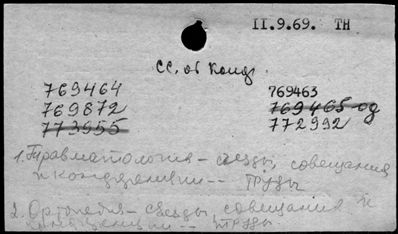 II.9.69. TH
СС. об конф.
769464
769463
769872
769465-од
773955
772992
1. Травматология - съезды, совещания
и конференции -- труды
2. Ортопедия - съезды, совещания и
конференции -- труды.